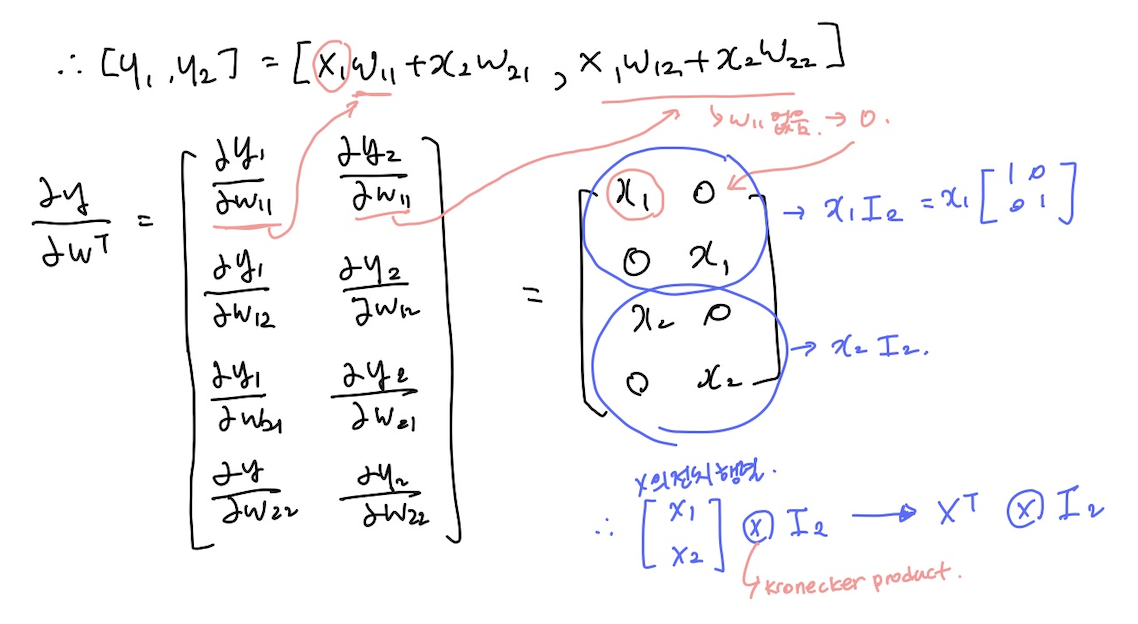 ∴ [y₁, y₂] = [x₁w₁₁+x₂w₂₁, x₁w₁₂+x₂w₂₂]
↳ w₁₁ 없음 → 0.
∂y/∂wᵀ = [∂y₁/∂w₁₁ ∂y₂/∂w₁₁
∂y₁/∂w₁₂ ∂y₂/∂w₁₂
∂y₁/∂w₂₁ ∂y₂/∂w₂₁
∂y/∂w₂₂ ∂y₂/∂w₂₂]
= [x₁ 0
0 x₁
x₂ 0
0 x₂]
→ x₁I₂ = x₁ [1 0
0 1]
→ x₂ I₂.
x의전치행렬.
∴ [x₁
x₂] ⊗ I₂ → xᵀ ⊗ I₂
↳ kronecker product.